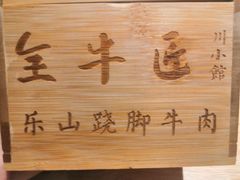 全牛匠
川小館
乐山跷脚牛肉